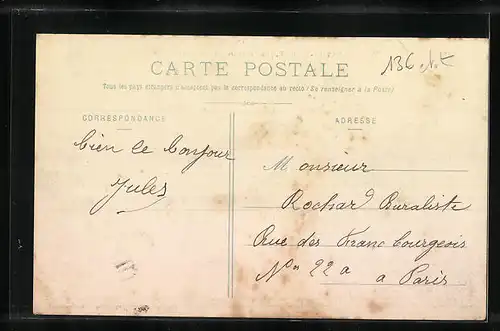 136
CARTE POSTALE
Tous les pays étrangers n'acceptent pas la correspondance au recto (Se renseigner à la Poste)
CORRESPONDANCE
ADRESSE
bien le bonjour
Jules
Monsieur
Rochard Buraliste
Rue des Franc bourgeois
No 22 a Paris